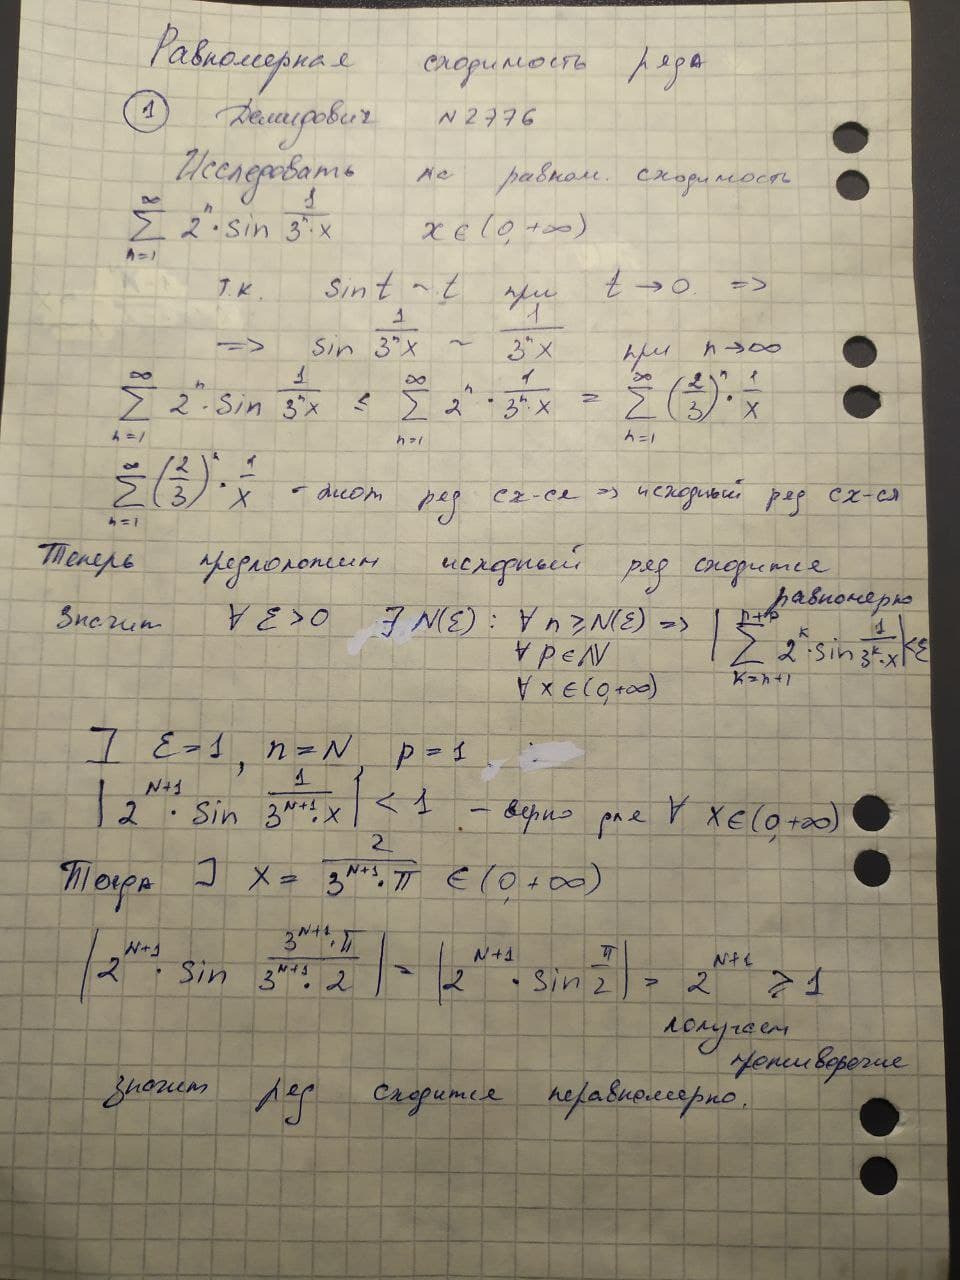 Равномерная сходимость ряда
① Демидович N2776
Исследовать на равном. сходимость
∑_{n=1}^{∞} 2^n · sin 1/(3^n · x) x ∈ (0, +∞)
т.к. sin t ~ t при t → 0. =>
=> sin 1/(3^n x) ~ 1/(3^n x) при n→∞
∑_{n=1}^{∞} 2^n · sin 1/(3^n x) ≤ ∑_{n=1}^{∞} 2^n · 1/(3^n · x) = ∑_{n=1}^{∞} (2/3)^n · 1/x
∑_{n=1}^{∞} (2/3)^n · 1/x - этот ряд сх-ся => исходный ряд сх-ся
Теперь предположим исходный ряд сходится
равномерно
Значит ∀ ε > 0 ∃ N(ε) : ∀ n ≥ N(ε) => |∑_{k=n+1}^{n+p} 2^k · sin 1/(3^k · x)| < ε
∀ p ∈ N
∀ x ∈ (0, +∞)
] ε = 1, n = N, p = 1
|2^{N+1} · sin 1/(3^{N+1} · x)| < 1 – верно для ∀ x ∈ (0, +∞)
Тогда ] x = 2/(3^{N+1} · π) ∈ (0, +∞)
|2^{N+1} · sin (3^{N+1} · π)/(3^{N+1} · 2)| = |2^{N+1} · sin π/2| = 2^{N+1} ≥ 1
получаем
противоречие
значит ряд сходится неравномерно.